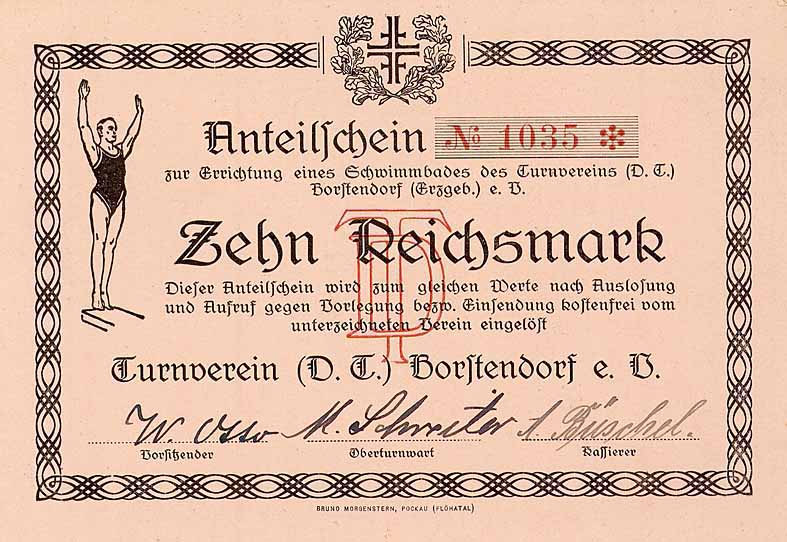 Anteilschein № 1035 ✻
zur Errichtung eines Schwimmbades des Turnvereins (D. T.)
Borstendorf (Erzgeb.) e. V.
Zehn Reichsmark
DT
Dieser Anteilschein wird zum gleichen Werte nach Auslosung
und Aufruf gegen Vorlegung bezw. Einsendung kostenfrei vom
unterzeichneten Verein eingelöst
Turnverein (D. T.) Borstendorf e. V.
W. Otto M. Schreiter A Büschel.
Vorsitzender Oberturnwart Kassierer
BRUNO MORGENSTERN, POCKAU (FLÖHATAL)